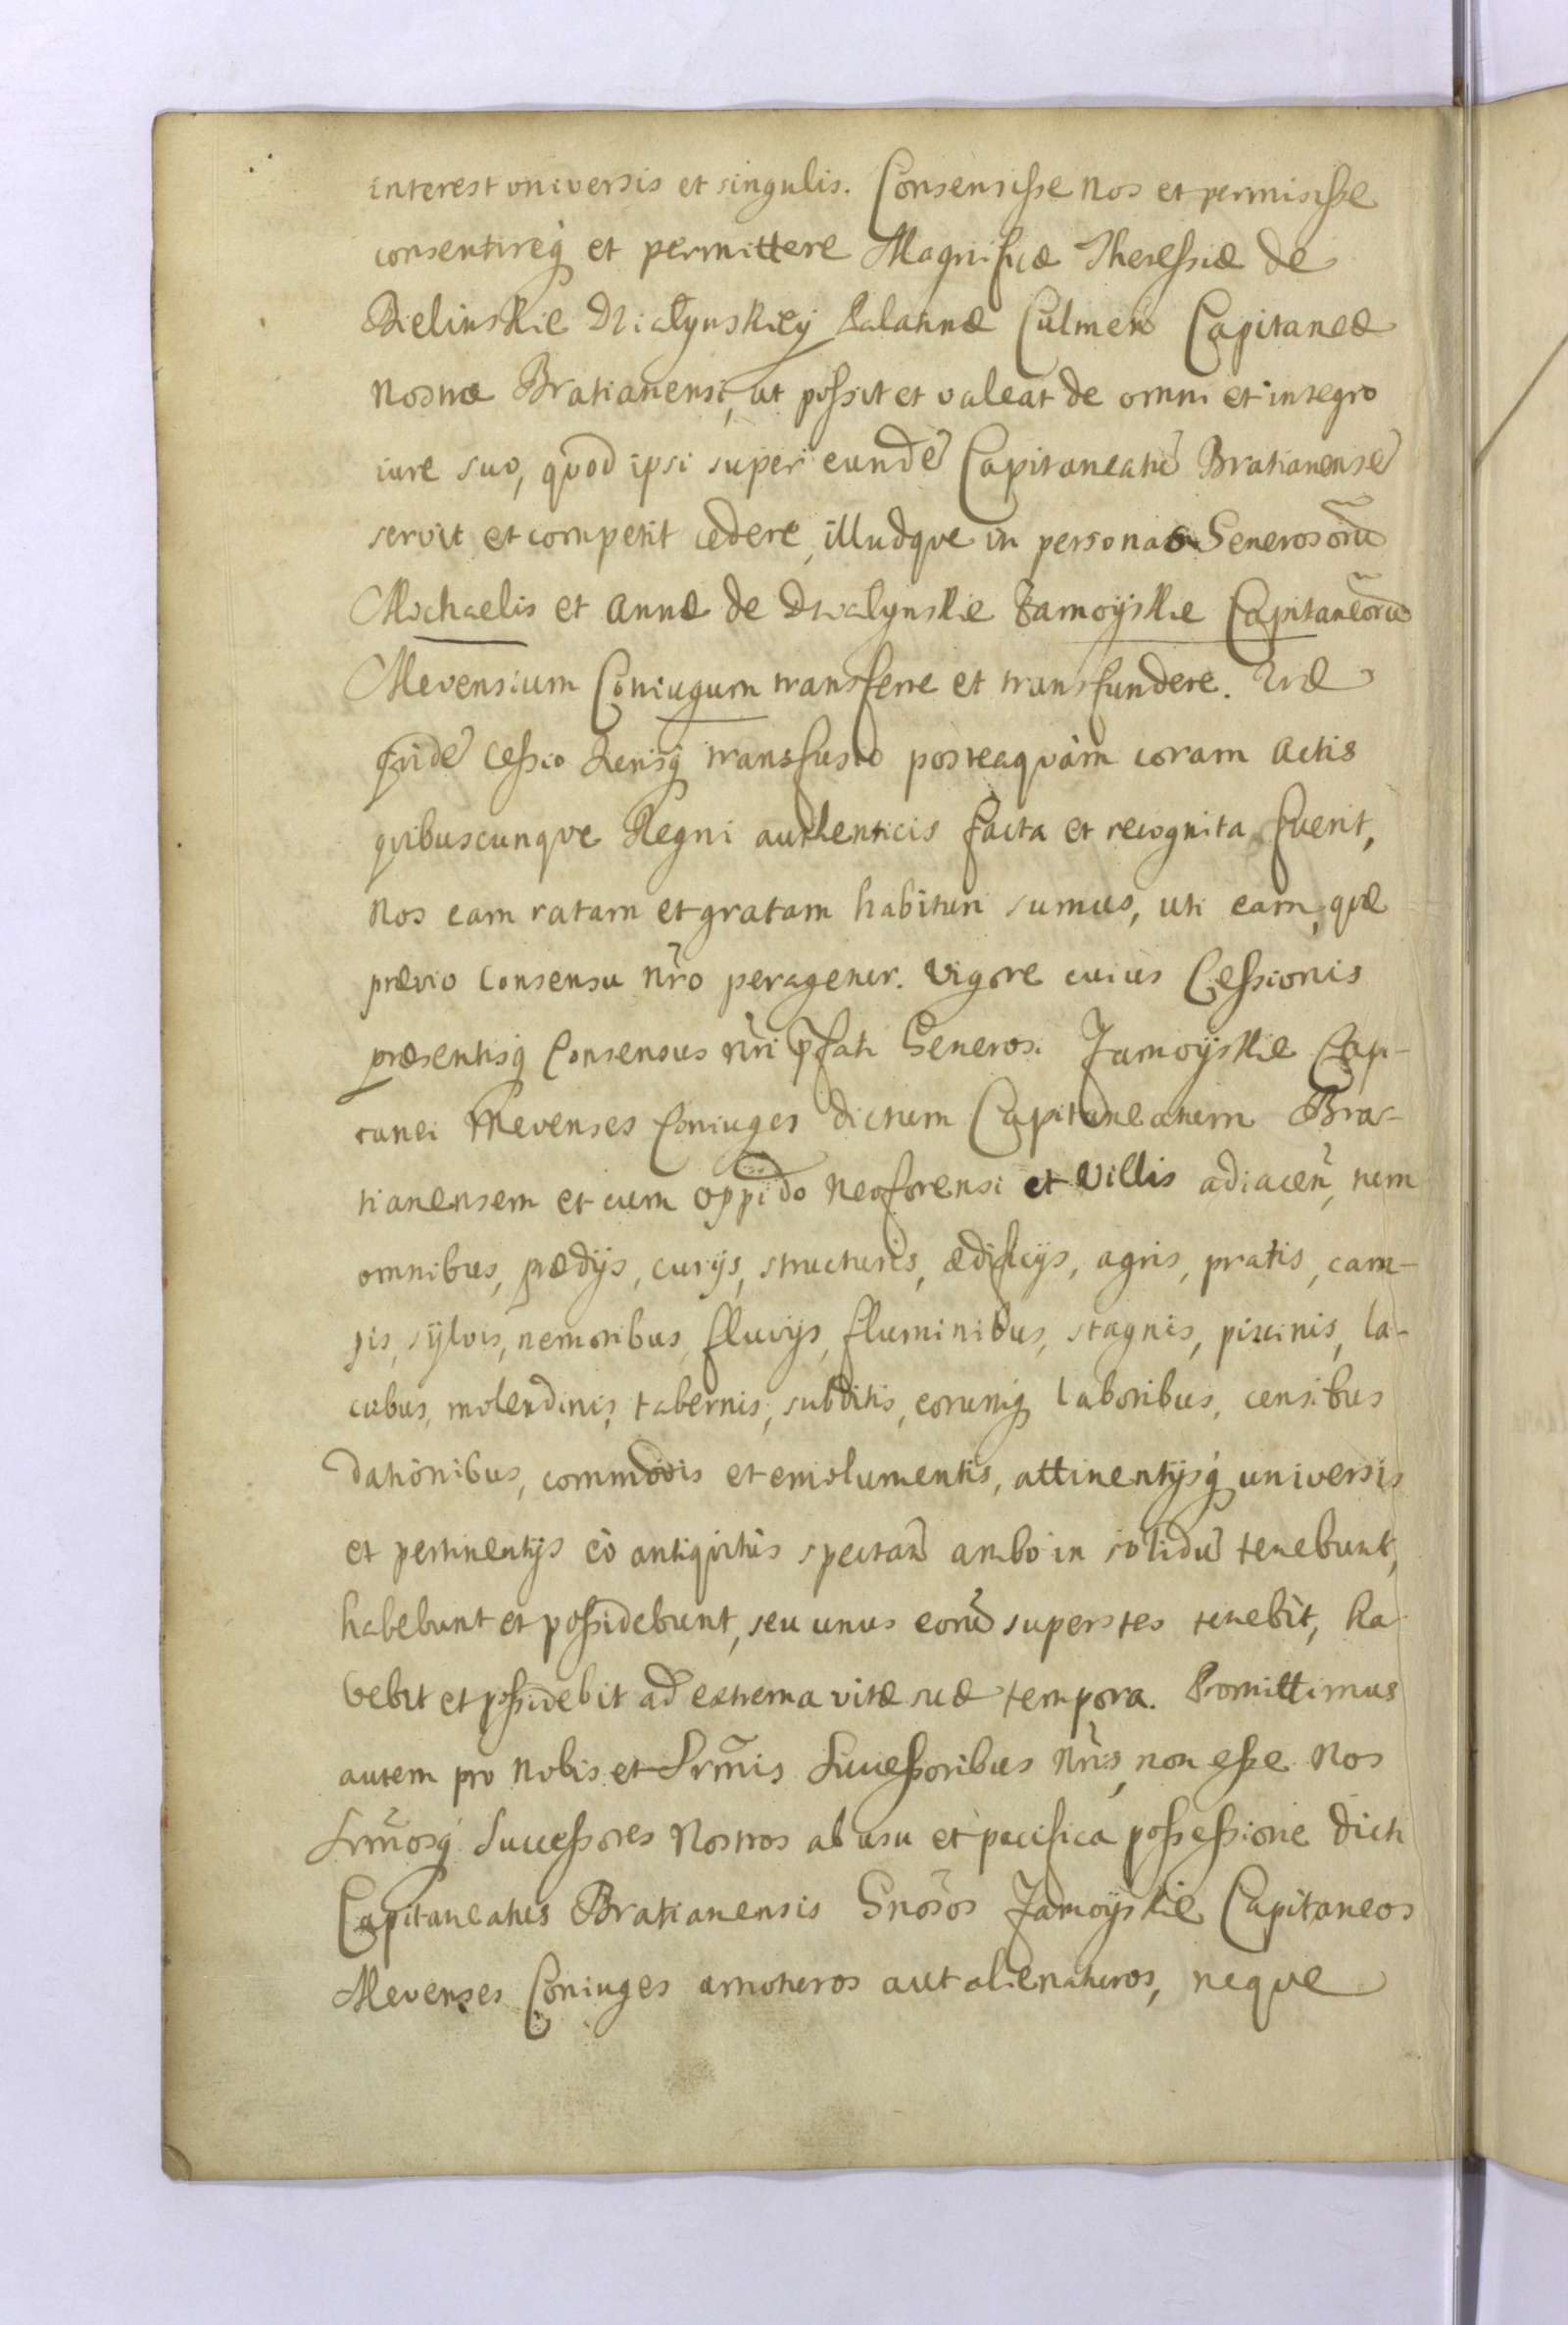 interest universis et singulis. Consensisse nos et permisisse
consentireq́ et permittere Magnificæ Theressiæ de
Bielinskie Działynskiey Palatinæ Culmen̄ Capitaneæ
nostræ Bratianensi, ut possit et valeat de omni et integro
iure suo, quod ipsi super eundē Capitaneatū Bratianensē
servit et competit cedere, illudque in personas Generosorū
Michaelis et Annæ de Dzialynskie Zamoyskie Capitaneorū
Mevensium Coniugum transferre et transfundere. Quæ
quidē Cessio Iurisq́ transfusio posteaquàm coram Actis
quibuscunque Regni authenticis facta et recognita fuerit,
nos eam ratam et gratam habituri sumus, uti eam, quæ
prævio Consensu nr̃o peragetur. Vigore cuius Cessionis
præsentisq́ Consensus nr̃i p̄fati Generosi Zamoyskie Capi-
tanei Mevenses Coniuges dictum Capitaneatum Bra-
tianensem et cum oppido Neoforensi et Villis adiacen̄, tum
omnibus, prædijs, curijs, structuris, ædificijs, agris, pratis, cam-
pis, sylvis, nemoribus, fluvijs, fluminibus, stagnis, piscinis, la-
cubus, molendinis, tabernis, subditis, eorumq́ laboribus, censibus
dationibus, commodis et emolumentis, attinentijsq́ universis
et pertinentijs eò antiquitùs spectan̄ ambo in solidū tenebunt,
habebunt et possidebunt, seu unus eorū superstes tenebit, ha
bebit et possidebit ad extrema vitæ suæ tempora. Promittimus
autem pro nobis et Srm̃is Successoribus nr̃is, non esse nos
Srm̃osq́ Successores Nostros ab usu et pacifica possessione dicti
Capitaneatus Bratianensis Gnõsos Zamoyskie Capitaneos
Mevenses Coniuges amoturos aut alienaturos, neque